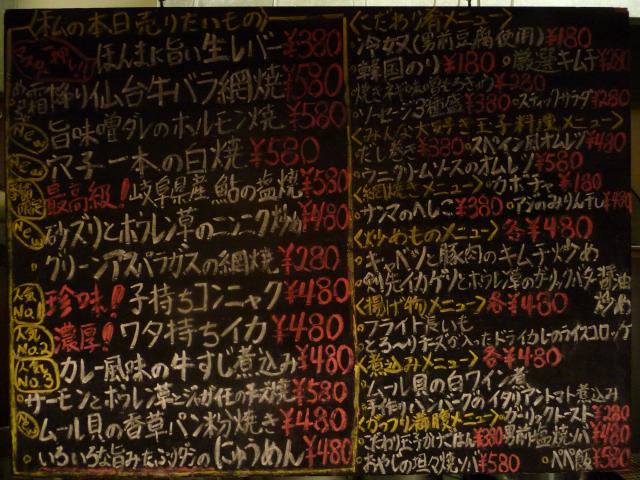 〈私の本日売りたいもの〉
ほんまに旨い生レバー ¥380
霜降り仙台牛バラ網焼 ¥580
New 旨味噌ダレのホルモン焼 ¥580
New 穴子一本の白焼 ¥580
最高級！岐阜県産 鮎の塩焼 ¥580
New 砂ズリとホウレン草のニンニク炒め ¥480
グリーンアスパラガスの網焼 ¥280
人気No.1 珍味！子持ちコンニャク ¥480
人気No.2 濃厚！ワタ持ちイカ ¥480
人気No.3 カレー風味の牛すじ煮込み ¥480
サーモンとホウレン草とジャガ芋のチーズ焼 ¥580
ムール貝の香草パン粉焼き ¥480
いろいろな旨みたっぷりダシのにゅうめん ¥480
〈こだわり肴メニュー〉
冷奴(男前豆腐使用) ¥180
韓国のり ¥180 厳選キムチ ¥280
¥280
ソーセージ3種盛 ¥380 スティックサラダ ¥280
〈みんな大好き玉子料理メニュー〉
だし巻き ¥380 スペイン風オムレツ ¥480
ウニクリームソースのオムレツ ¥580
〈網焼きメニュー〉 カボチャ ¥180
サンマのへしこ ¥380 アジのみりん干し ¥480
〈炒めものメニュー〉 各¥480
キャベツと豚肉のキムチ炒め
剣先イカゲソとホウレン草のガーリックバター醤油炒め
〈揚げ物メニュー〉 各¥480
フライド長いも
とろ〜りチーズが入ったドライカレーのライスコロッケ
〈煮込みメニュー〉 各¥480
ムール貝の白ワイン煮
手作りハンバーグのイタリアントマト煮込み
〈がっつり満腹メニュー〉 ガーリックトースト ¥280
こだわり玉子かけごはん ¥380 男前塩焼ソバ ¥480
おやじの坦々焼ソバ ¥580 ペペ飯 ¥580